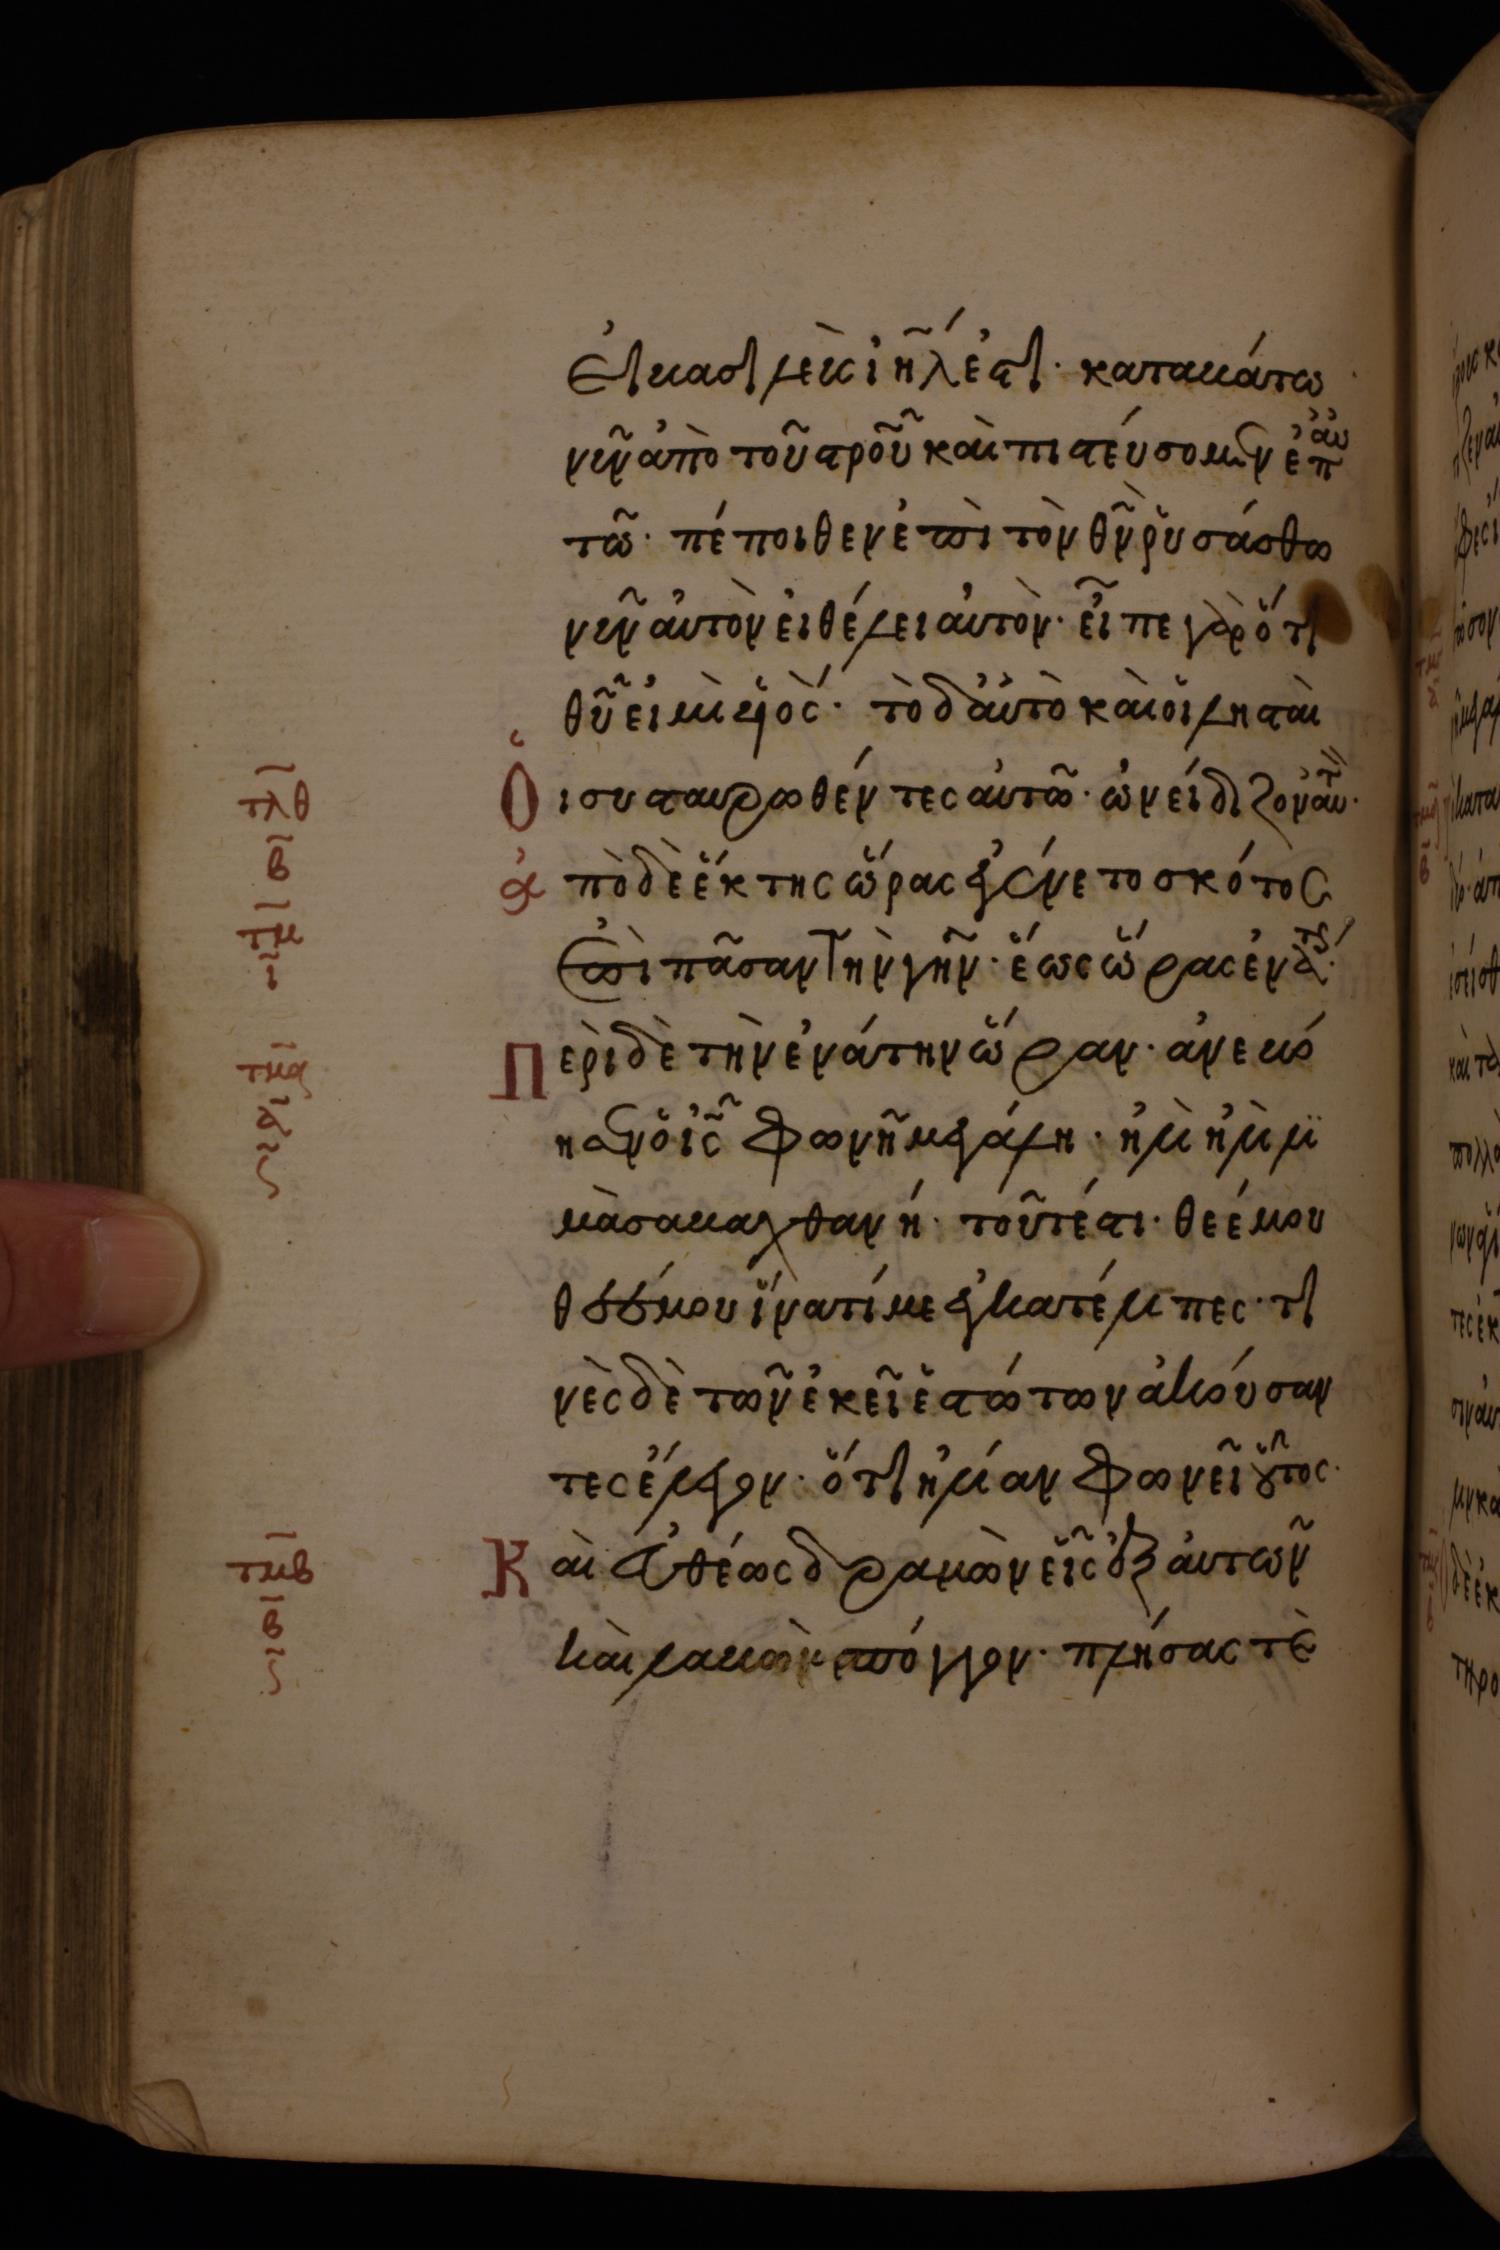 εἰ βασιλεὺς ἰηλ ἐστι· καταβάτω
νῦν ἀπὸ τοῦ στροῦ καὶ πιστεύσομεν ἐπ αυ
τῶ· πέποιθεν ἐπὶ τὸν θν ῥυσάσθω
νῦν αὐτὸν εἰ θέλει αὐτὸν· εἶπε γὰρ ὅτι
θυ εἰμὶ υἱὸς· τὸ δ' αὐτὸ καὶ οἱ λησταὶ
οἱ συσταυρωθέντες αὐτῶ· ὠνείδιζον αὐτ·
ἀπὸ δὲ ἕκτης ὥρας ἐγένετο σκότος
ἐπὶ πᾶσαν τὴν γῆν· ἕως ὥρας ἐνάτης·
Περὶ δὲ τὴν ἐνάτην ὥραν· ἀνεβό
ησεν ὁ ις φωνῆ μεγάλη· ἠλὶ ἠλὶ λι
μὰ σαβαχθανή· τοῦτέστι· θεέ μου
θεέ μου ἵνατί με ἐγκατέλιπες· τι
νὲς δὲ τῶν ἐκεῖ ἑστώτων ἀκούσαν
τες ἔλεγον· ὅτι ἠλίαν φωνεῖ οὗτος·
Καὶ εὐθέως δραμὼν εἷς ἐξ αὐτῶν
καὶ λαβὼν σπόγγον· πλήσας τὲ
τλθ
β
τμ
τμα
τμβ
β